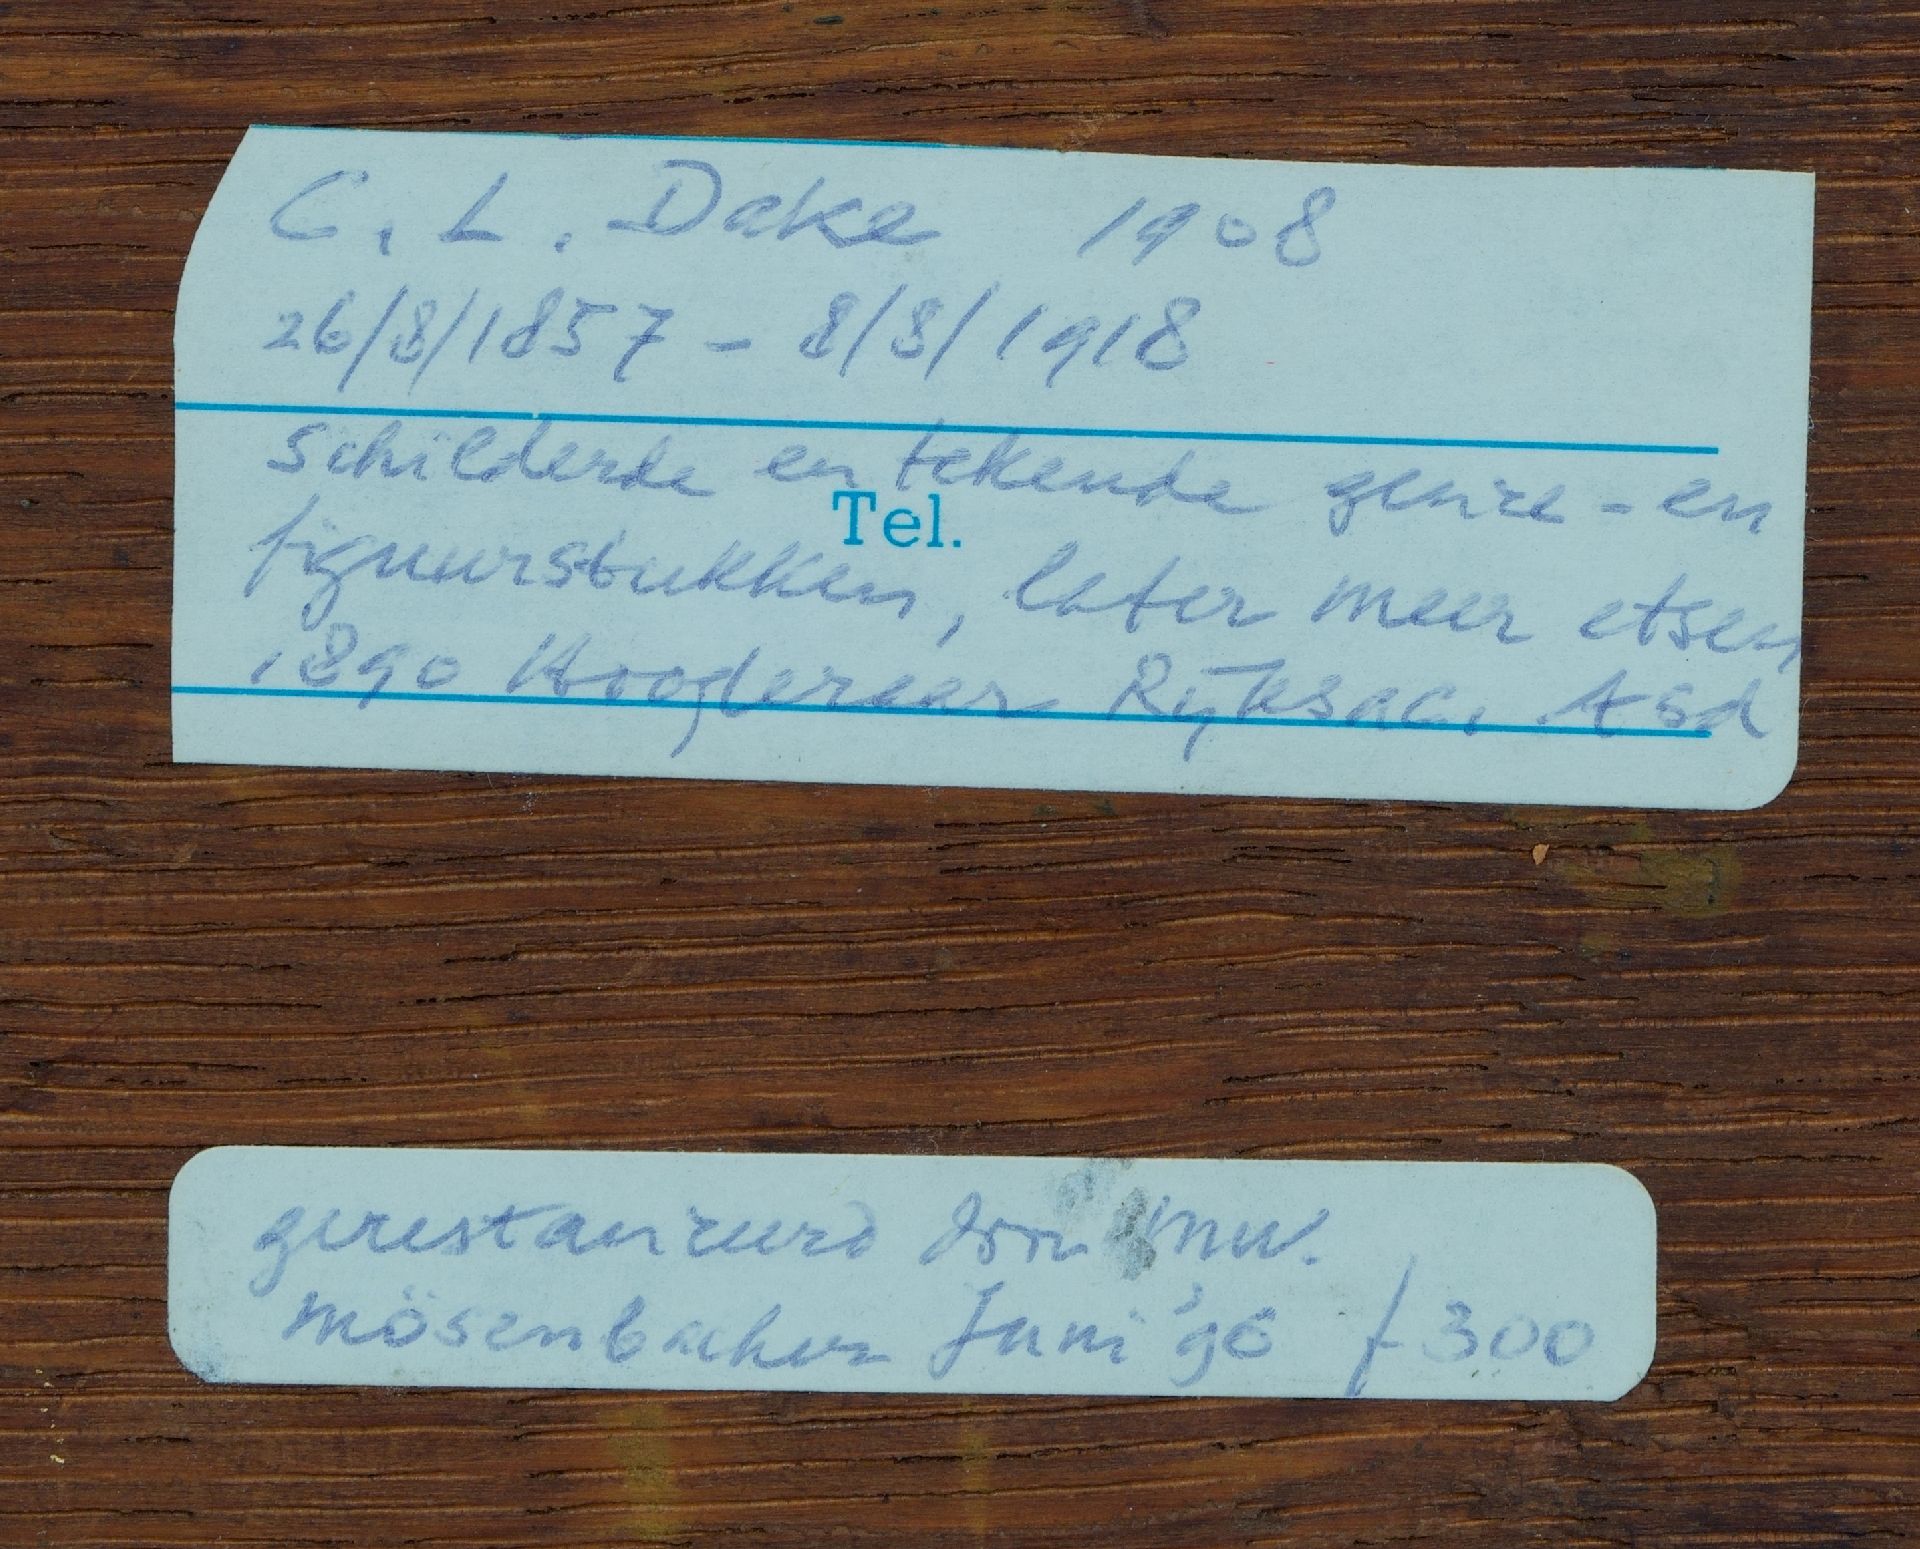 C. L. Dake 1908
26/8/1857 - 8/8/1918
schilderde en tekende genre - en
Tel.
figuurstukken, later meer etsen
1890 Hoogleraar Rijksac. Asd
gerestaureerd door mw.
Mösenbacher Juni '90 f 300